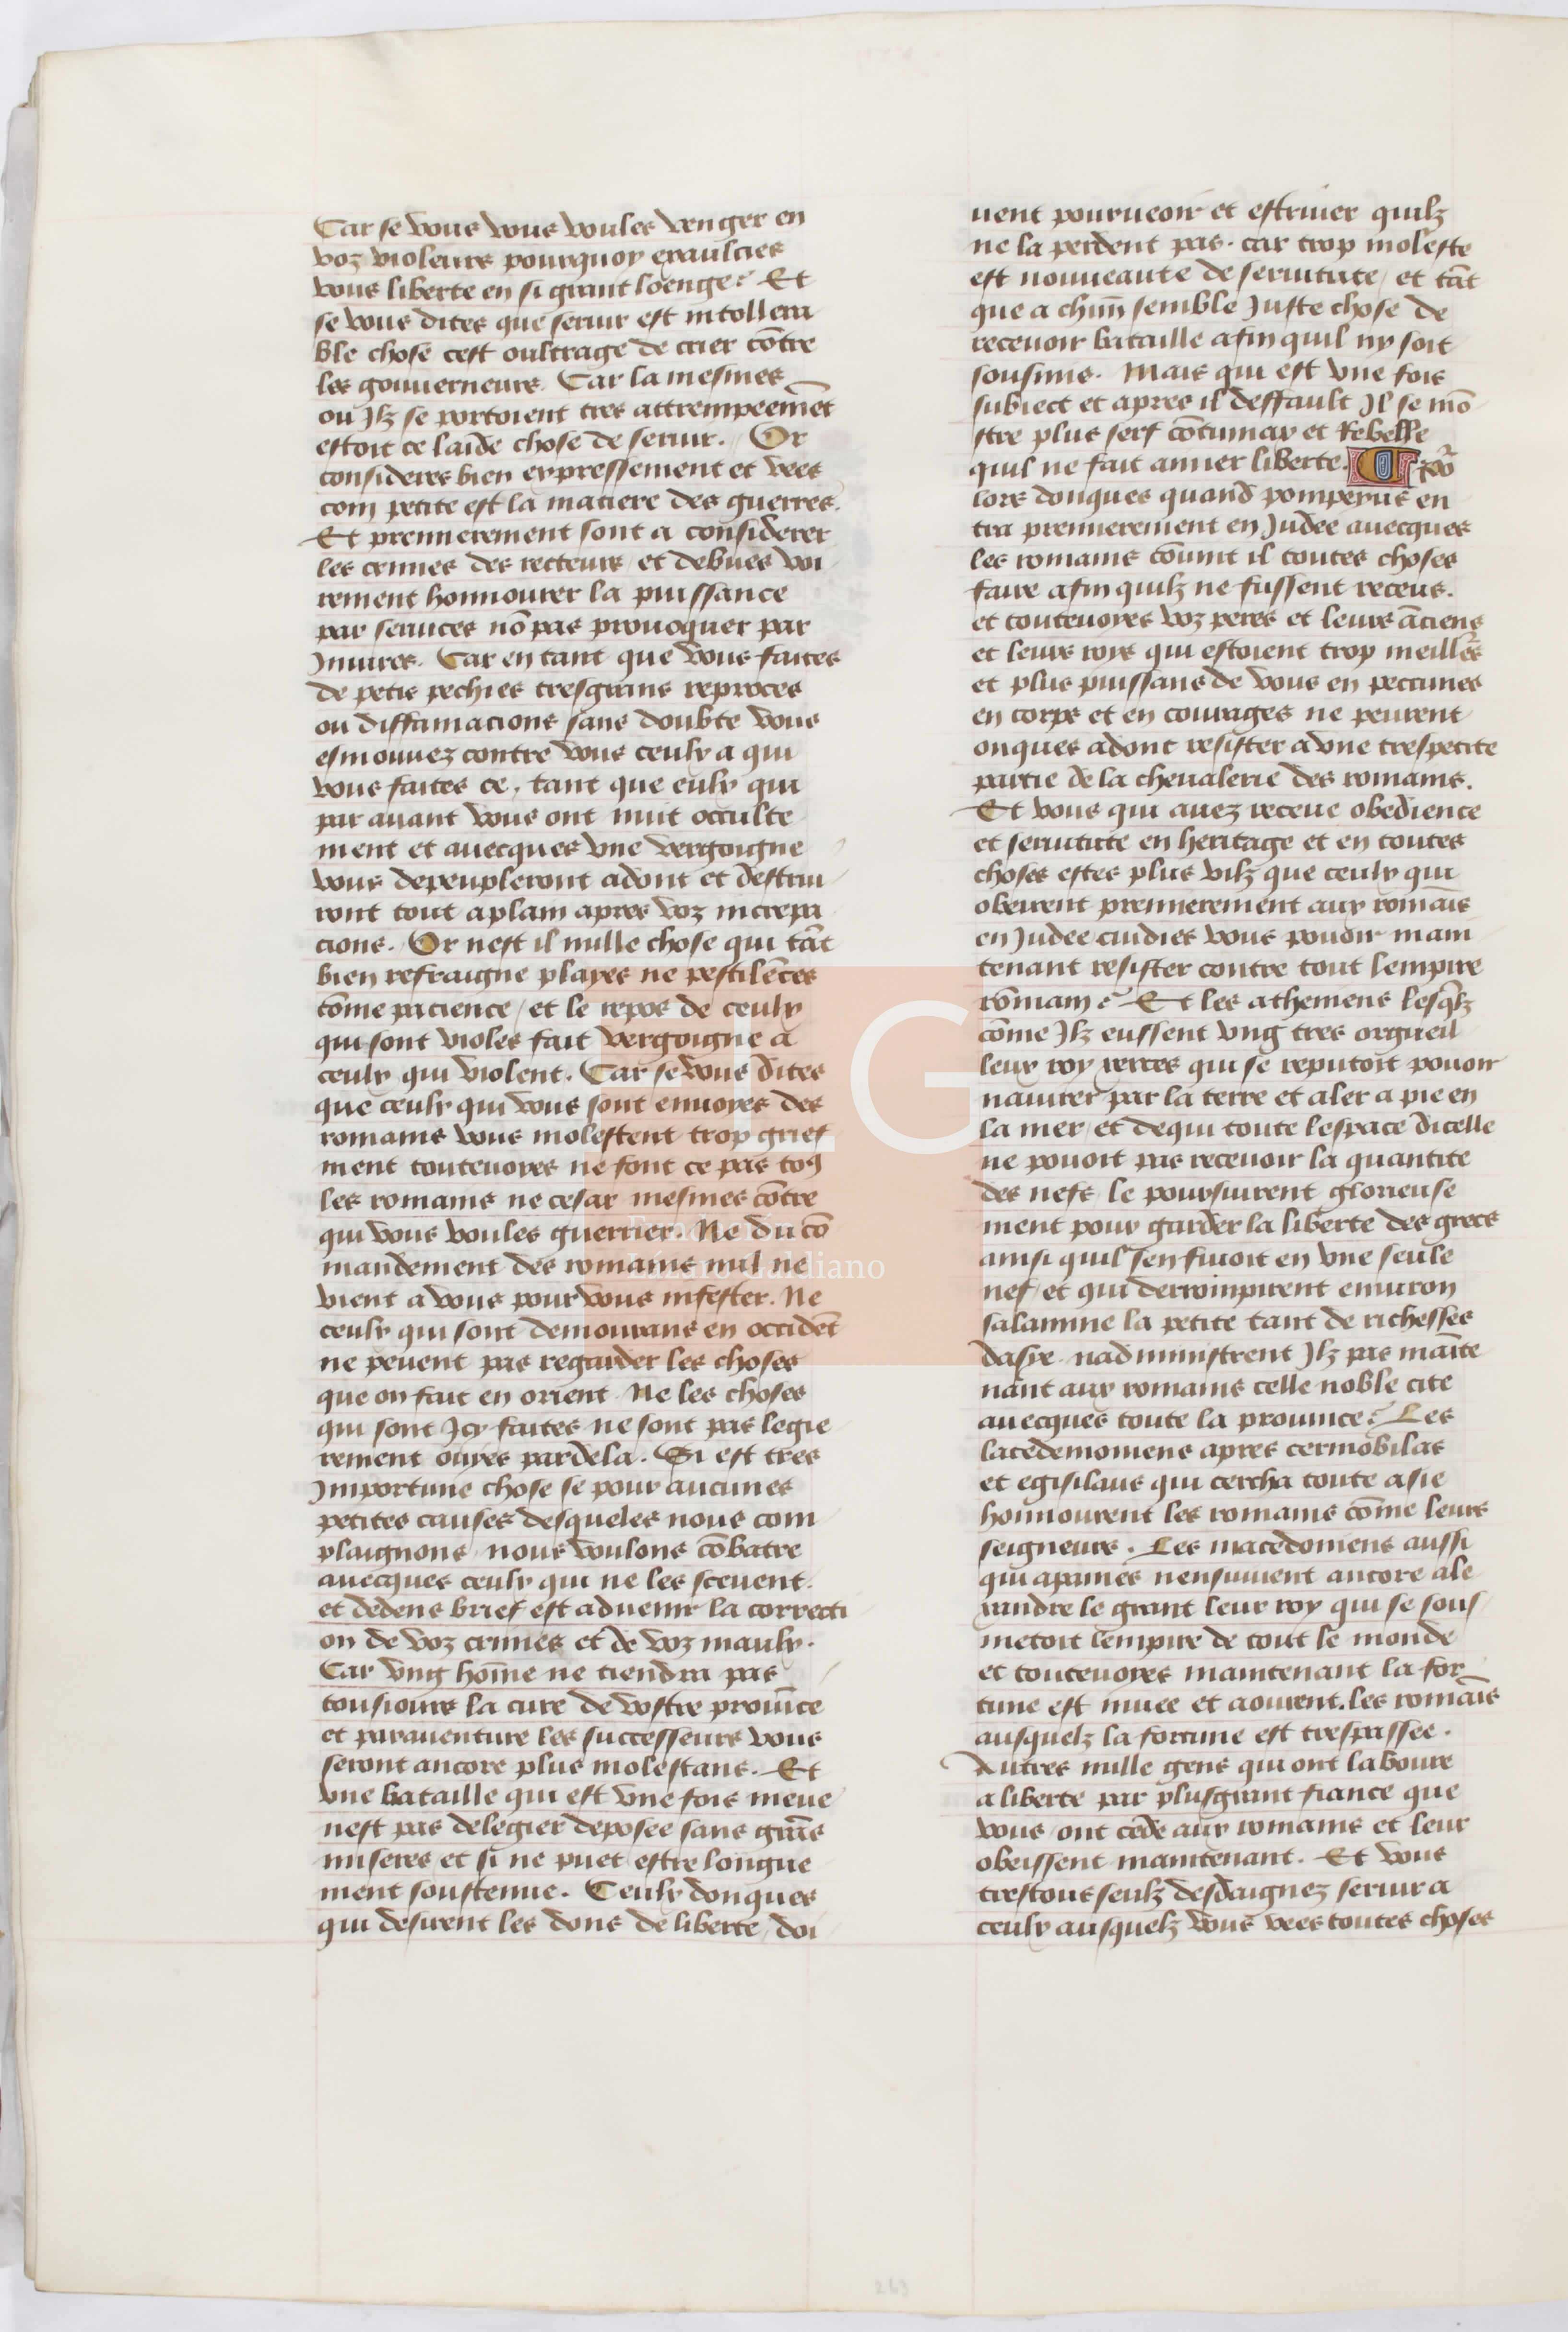 Car se vous vous voules venger en
voz violeurs pourquoy exaulcies
vous liberte en si grant loenge? Et
se vous dites que seruir est intollera
ble chose cest oultrage de crier cōtre
les gouuerneurs. Car la mesmes
ou Ilz se portoient tres attrempeemēt
estoit ce laide chose de seruir. Or
consideres bien expressement et vees
com petite est la matiere des guerres.
Et premierement sont a considerer
les crimes des recteurs et debues voi
rement honnourer la puissance
par seruices nō pas prouoquer par
Iniures. Car en tant que vous faites
de petis pechies tresgrans reproces
ou diffamacions sans doubte vous
esmouuez contre vous ceulx a qui
vous faites ce, tant que eulx qui
par auant vous ont nuit occulte
ment et auecques vne vergoigne
vous depeupleront adont et destrui
ront tout aplain apres voz increpa
cions. Or nest il nulle chose qui tāt
bien refraigne playes ne pestilēces
cōme pacience / et le repos de ceulx
qui sont violes fait vergoigne a
ceulx qui violent. Car se vous dites
que ceulx qui vous sont enuoyes des
romains vous molestent trop grief
ment toutenoyes ne font ce pas toꝯ
les romains ne cesar mesmes cōtre
qui vous voules guerrier. Ne du cō
mandement des romains nul ne
vient a vous pour vous infester. Ne
ceulx qui sont demourans en occidēt
ne peuent pas regarder les choses
que on fait en orient. Ne les choses
qui sont Icy faites ne sont pas legie
rement ouyes pardela. Si est tres
Importune chose se pour aucunes
petites causes desqueles nous com
plaignons nous voulons cōbatre
auecques ceulx qui ne les sceuent.
et dedens brief est aduenir la correcti
on de voz crimes et de voz maulx.
Car vng hōme ne tiendra pas
tousiours la cure de vostre prouīce
et parauenture les successeurs vous
seront ancore plus molestans. Et
vne bataille qui est vne fois meue
nest pas de legier deposee sans grās
miseres et si ne puet estre longue
ment soustenue. Ceulx donques
qui desirent les dons de liberte / doi
uent pourueoir et estriuer quilz
ne la perdent pas. car trop moleste
est nouueaute de seruitute / et tāt
que a chūn semble Iuste chose de
receuoir bataille afin quil ny soit
sousmis. Mais qui est vne fois
subiect et apres il deffault Il se mō
stre plus serf cōtumax et Rebelle
quil ne fait amer liberte.
lors donques quand pompeyus en
tra premierement en Iudee auecques
les romains cōuint il toutes choses
faire afin quilz ne fussent receus.
et toutenoyes voz peres et leurs āciens
et leurs roys qui estoient trop meillēs
et plus puissans de vous en peccunes
en corps et en courages ne peurent
onques adont resister a vne trespetite
partie de la cheualerie des romains.
Et vous qui auez receue obedience
et seruitute en heritage et en toutes
choses estes plus vilz que ceulx qui
obeirent premierement aux romāis
en Iudee cuidies vous pouoir main
tenant resister contre tout lempire
rōmain? Et les atheniens lesq̄lz
cōme Ilz eussent vng tres orgueil
leux roy xerces qui se reputoit pouoir
nauirer par la terre et aler a pie en
la mer / et dequi toute lespace dicelle
ne pouoit pas receuoir la quantite
des nefs le poursuirent glorieuse
ment pour garder la liberte des grecs
ainsi quil sen fuioit en vne seule
nef / et qui derrompirent enuiron
salamine la petite tant de richesses
dasye. nadministrent Ilz pas maīte
nāt aux romains celle noble cite
auecques toute la prouince? Les
lacedemoniens apres cermobilas
et egisilaus qui cercha toute asie
honnourent les romains cōme leurs
seigneurs. Les macedoniens aussi
qui apaines nensuiuent ancore ale
xandre le grant leur roy qui se sous
metoit lempire de tout le monde
et toutenoyes maintenant la for
tune est muee et aourent. les romāis
ausquelz la fortune est trespassee.
Autres mille gens qui ont laboure
a liberte par plusgrant fiance que
vous ont cede aux romains et leur
obeissent maintenant. Et vous
trestous seulz desdaignez seruir a
ceulx ausquelz vous vees toutes choses
LG
Fundación
Lázaro Galdiano
263